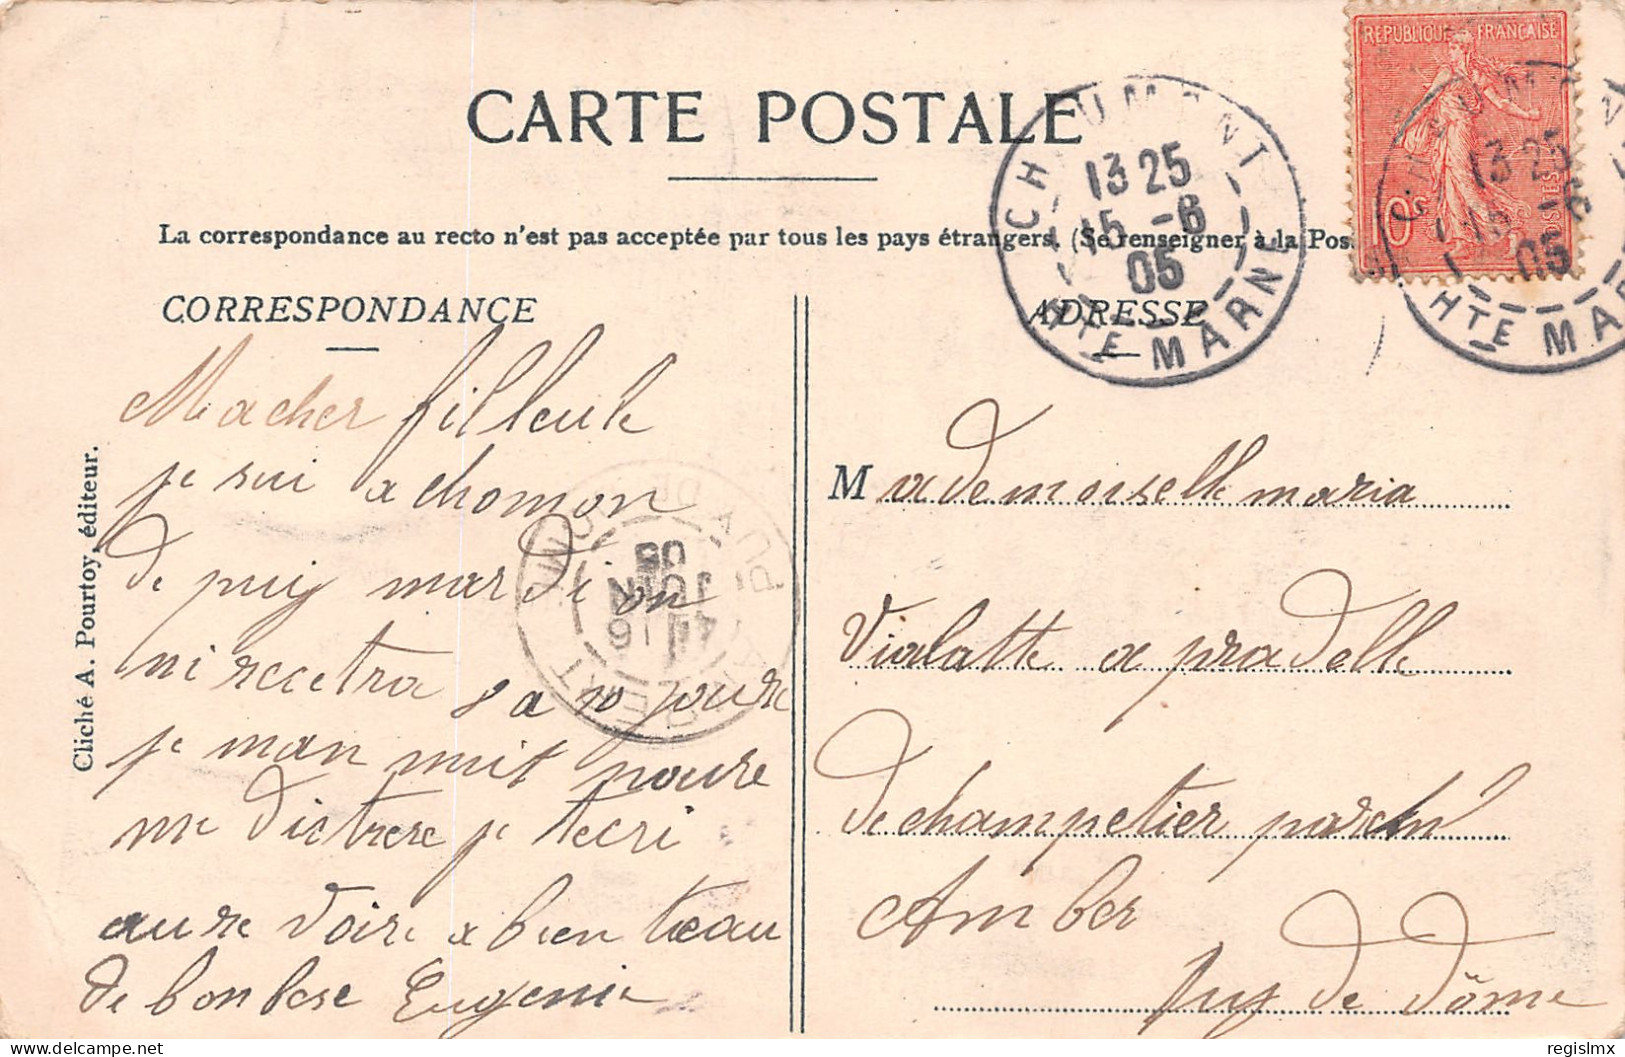 CARTE POSTALE
La correspondance au recto n'est pas acceptée par tous les pays étrangers. (Se renseigner à la Pos
CORRESPONDANCE
Macher filleule
je sui a chomon
de puij mardi on
ni recetra sa 10 joure
je man nuit poure
me dictrere je tecri
aure voire a bien teau
de bon bese Eugenie
Cliché A. Pourtoy, éditeur.
ADRESSE
Mademoiselle maria
Vialatte a pradelle
de champetier par
Amber
Puy de dôme
REPUBLIQUE FRANÇAISE
POSTES
CHAUMONT
13 25
15 -6
05
HTE MARNE
CHAUMON
13 25
15 -6
05
HTE MAR
AMBERT
PUY-DE-DOME
16
JUIN
05
regislmx
delcampe.net